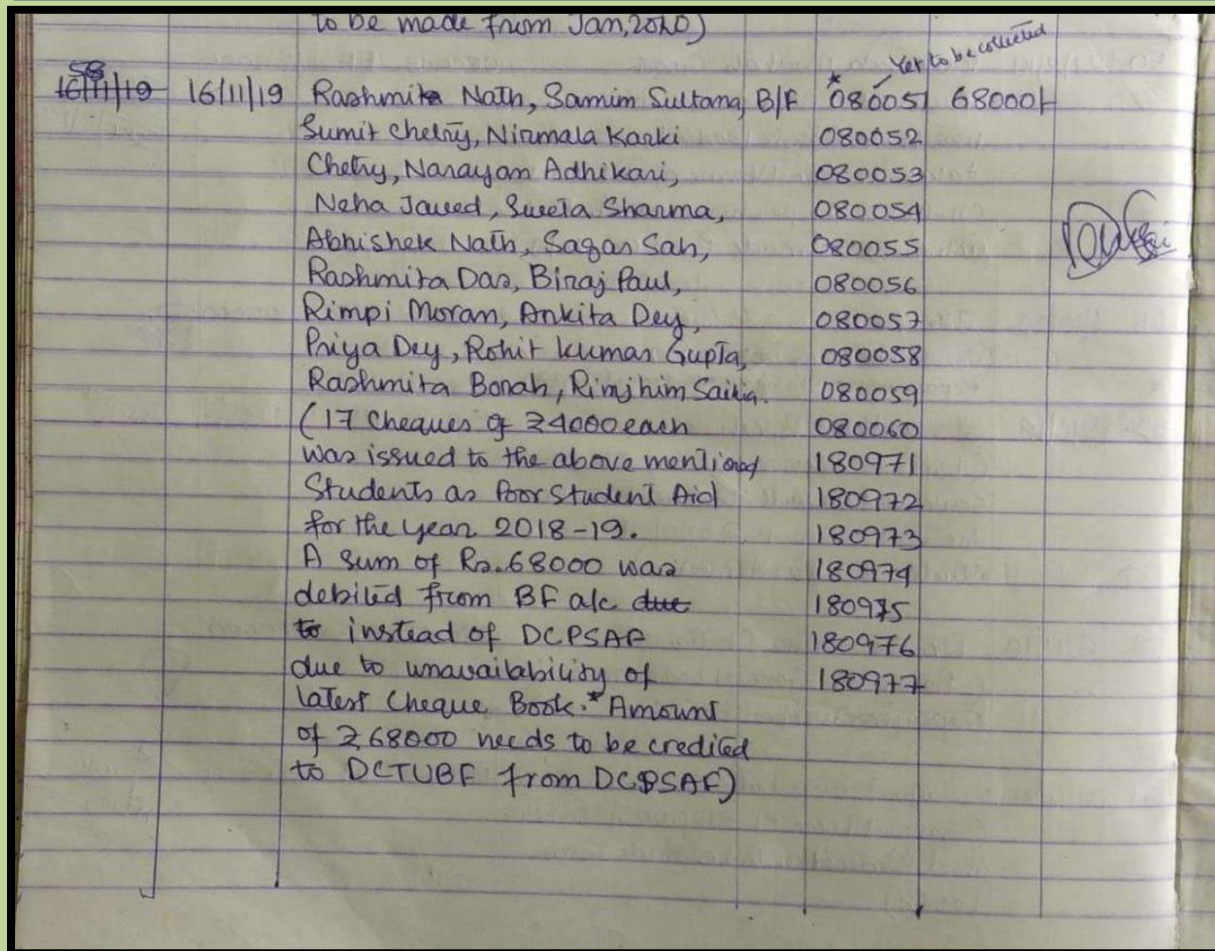 to be made from Jan, 2020)
Yet to be collected
58
16/11/19 16/11/19 Rashmita Nath, Samim Sultana, B/F *080051 68000/-
Sumit Chetry, Nirmala Karki 080052
Chetry, Narayan Adhikari, 080053
Neha Javed, Sweta Sharma, 080054
Abhishek Nath, Sagar Sah, 080055
Rashmita Das, Biraj Paul, 080056
Rimpi Moran, Ankita Dey, 080057
Priya Dey, Rohit Kumar Gupta, 080058
Rashmita Borah, Rimjhim Saikia. 080059
(17 Cheques of ₹4000 each 080060
was issued to the above mentioned 180971
Students as Poor Student Aid 180972
for the year 2018-19. 180973
A sum of Rs. 68000 was 180974
debited from BF a/c due 180975
to instead of DCPSAF 180976
due to unavailability of 180977
latest Cheque Book. *Amount
of ₹68000 needs to be credited
to DCTUBF from DCPSAF)